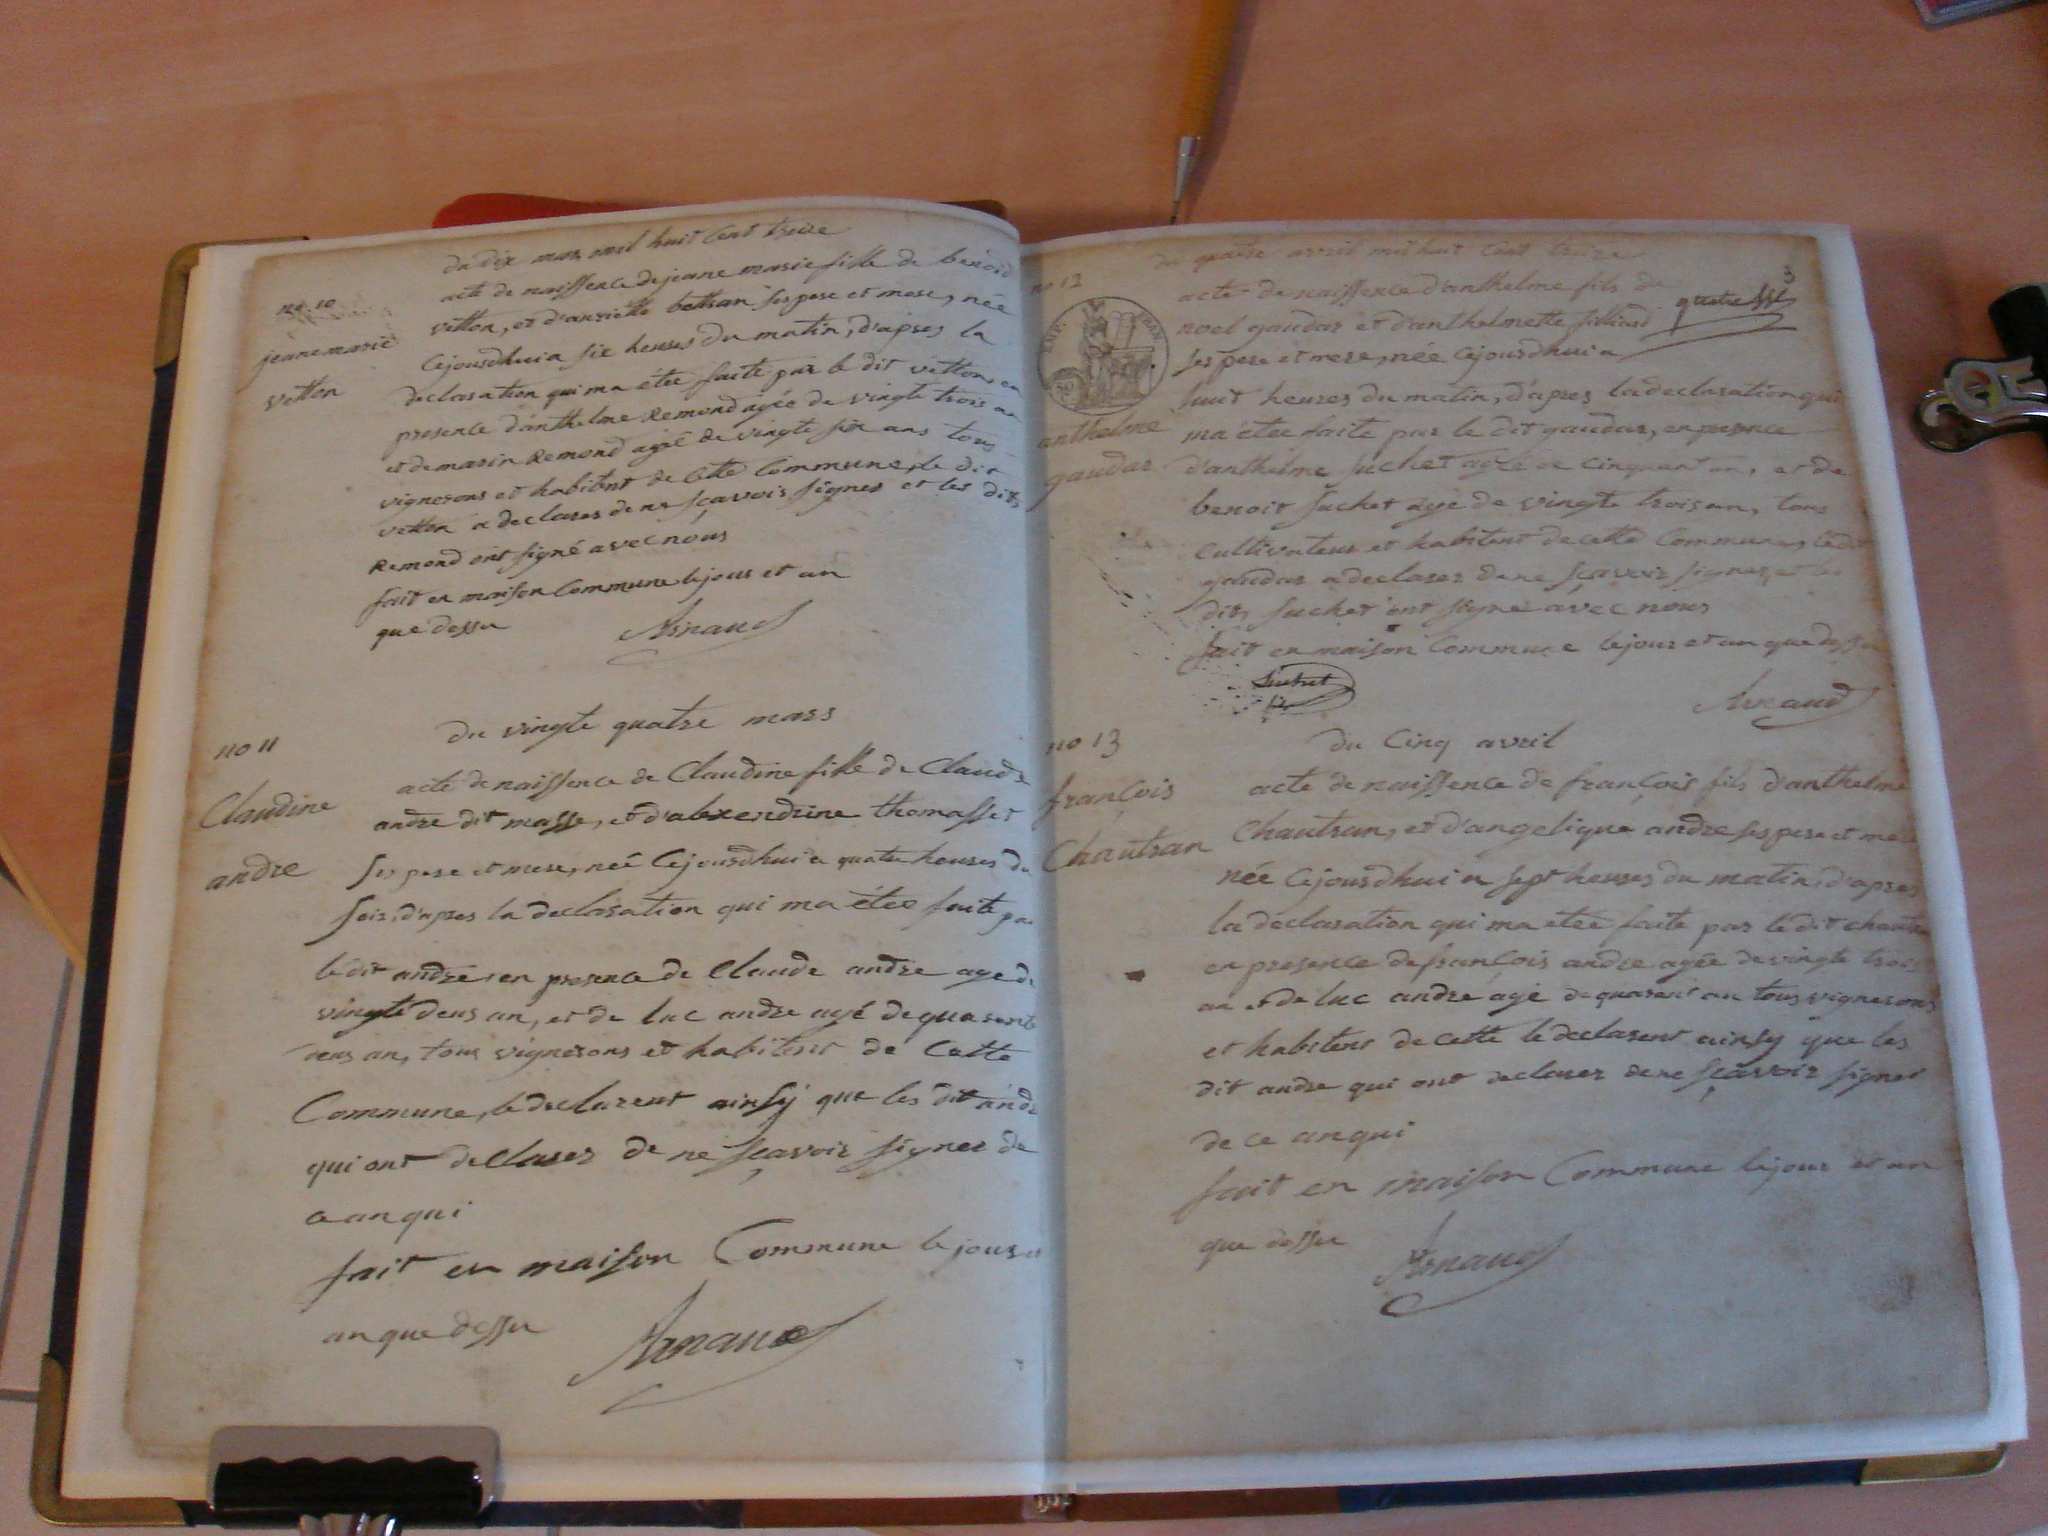 du dix mars mil huit cent treize
no 10
jeane marie
vetton
acte de naissence de jeane marie fille de benoid
vetton, et d'anriette bettran ses pere et mere, née
cejourdhui a six heures du matin, d'apres la
declaration qui ma étée faite par le dit vetton, en
presence d'anthelme Remond agée de vingte trois an
et de marin Remond agé de vingte six ans tous
vignerons et habitent de cete Commune, le dit
vetton a declarer de ne sçavoir signer et les dits
Remond ont signé avec nous
fait en maison Commune le jour et an
que dessu
Arnaud
du vingte quatre mars
no 11
Claudine
andre
acte de naissence de Claudine fille de Claude
andre dit masse, et d'alexendrine thomasset
ses pere et mere, née Cejourdhui a quatre heures du
soir, d'apres la declaration qui ma étée faite par
le dit andre, en presence de Claude andre age de
vingte deus an, et de luc andre agé de quarente
deus an, tous vignerons et habitent de Cette
Commune, le declarent ainsy que les dit andre
qui ont declarer de ne sçavoir signer de
ce anqui
fait en maison Commune le jour et
an que dessu
Arnaud
du quatre avril mil huit Cent treize
3
no 12
IMP. FRAN.
50
anthelme
gaudar
acte de naissence d'anthelme fils de
noel gaudar et d'anthelmette filliard
ses pere et mere, née cejourdhui a
huit heures du matin, d'apres la declaration qui
ma étée faite par le dit gaudar, en presence
d'anthelme suchet agée de cinquent an, et de
benoit suchet agé de vingte trois an, tous
cultivateur et habitent de cette Commune, le dit
gaudar a declarer de ne sçavoir signer, et les
dits suchet ont signé avec nous
fait en maison Commune le jour et an que dessu
Suchet
Arnaud
no 13
françois
Chautran
du Cinq avril
acte de naissence de françois fils d'anthelme
Chautran, et d'angelique andre ses pere et mere
née cejourdhui a sept heures du matin, d'apres
la declaration qui ma étée faite par le dit chautran
en presence de françois andre agée de vingte trois
an et de luc andre agé de quarent an tous vignerons
et habitent de cette le declarent ainsy que les
dit andre qui ont declarer de ne sçavoir signer
de ce anqui
fait en maison Commune le jour et an
que dessu
Arnaud